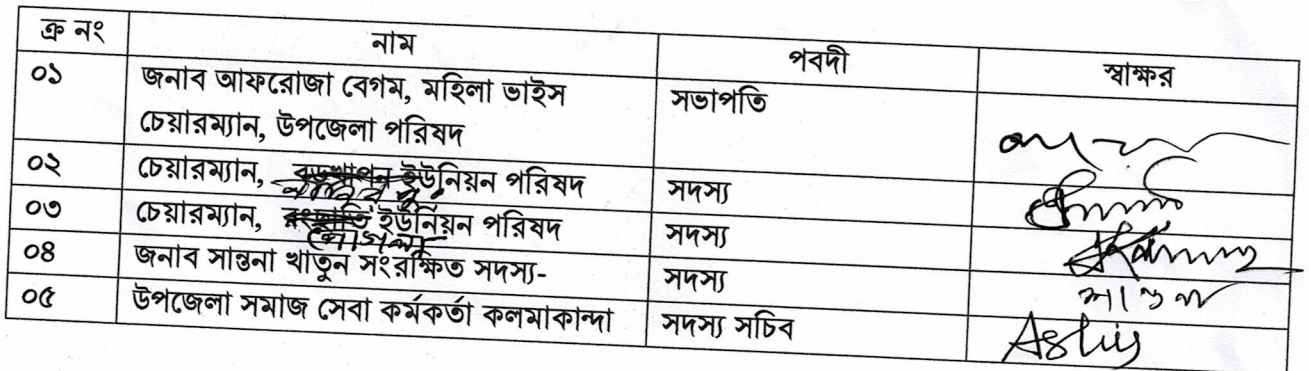 ক্র নং নাম পবদী স্বাক্ষর
০১ জনাব আফরোজা বেগম, মহিলা ভাইস সভাপতি
চেয়ারম্যান, উপজেলা পরিষদ
০২ চেয়ারম্যান, বড়খাপন ইউনিয়ন পরিষদ সদস্য
০৩ চেয়ারম্যান, রংছাতি ইউনিয়ন পরিষদ সদস্য
পোগলা
০৪ জনাব সান্তনা খাতুন সংরক্ষিত সদস্য- সদস্য
০৫ উপজেলা সমাজ সেবা কর্মকর্তা কলমাকান্দা সদস্য সচিব